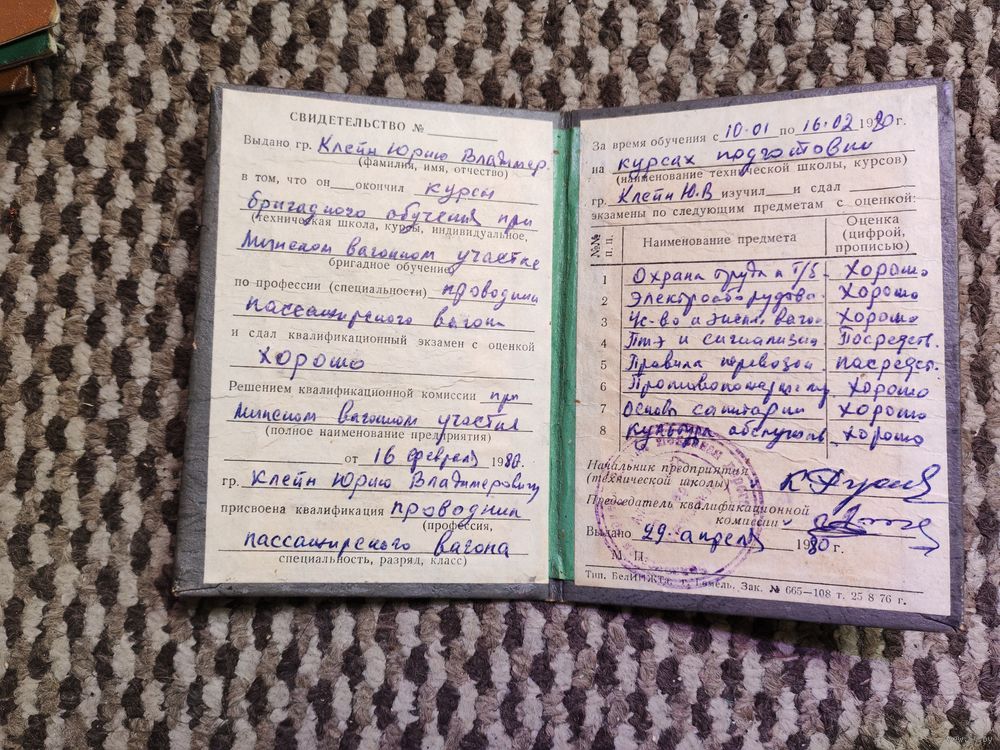 СВИДЕТЕЛЬСТВО №
Выдано гр. Клейн Юрию Владимер.
(фамилия, имя, отчество)
в том, что он окончил курсы
бригадного обучения при
(техническая школа, курсы, индивидуальное,
Минском вагонном участке
бригадное обучение)
по профессии (специальности) проводник
пассажирского вагон
и сдал квалификационный экзамен с оценкой
хорошо
Решением квалификационной комиссии при
минском вагонном участке
(полное наименование предприятия)
от 16 февраля 1980г.
гр. Клейн Юрию Владимеровичу
присвоена квалификация проводник
(профессия,
пассажирского вагона
специальность, разряд, класс)
За время обучения с 10.01 по 16.02 1980г.
на курсах подготовки
(наименование технической школы, курсов)
гр. Клейн Ю.В изучил и сдал
экзамены по следующим предметам с оценкой:
№№ п. п. Наименование предмета Оценка (цифрой, прописью)
1 Охрана труда и Т/Б- Хорошо
2 Электрооборудова- Хорошо
3 Ус-во и экспл. вагон. Хорошо
4 ПТЭ и сигнализация Посредств.
5 Правила перевозок посредст.
6 Противопожарные Хорошо
7 Основы санитарии Хорошо
8 Культура обслужив. Хорошо
Начальник предприятия
(технической школы)
Председатель квалификационной
комиссии
Выдано 29 апреля 1980 г.
М. П.
Тип. БелИИЖТа, г. Гомель. Зак. № 665—108 т. 25 8 76 г.